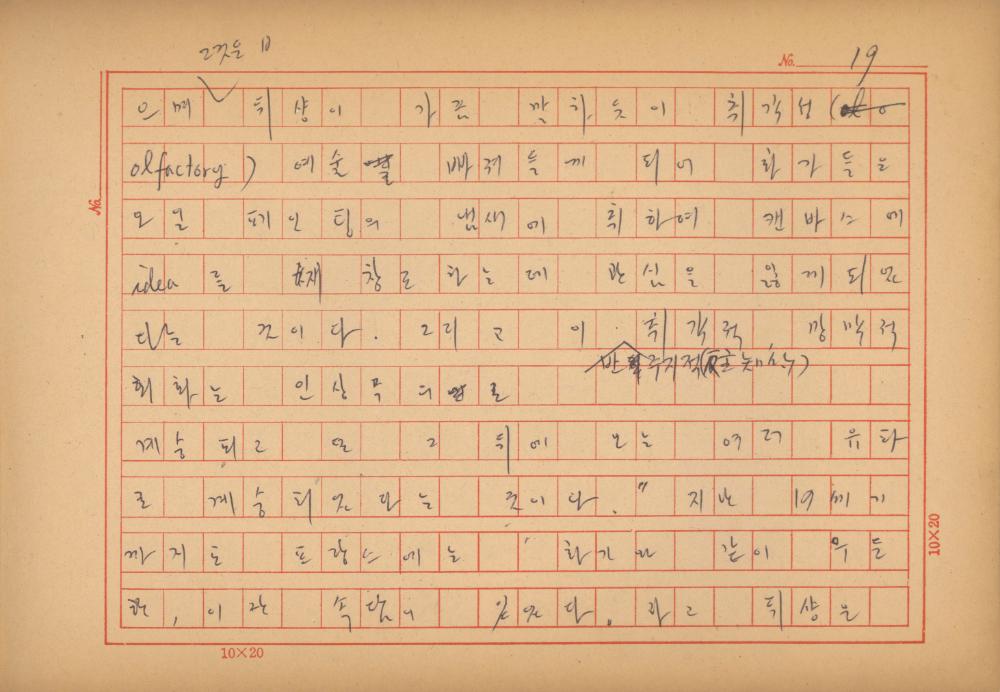 그것은
No. 19
으며 뒤샹이 가끔 말하듯이 취각성(
olfactory) 예술 빠져들게 되어 화가들은
오일 페인팅의 냄새에 취하여 캔바스에
idea를 재창조하는데 관심을 잃게 되었
다는 것이다. 그리고 이 취각적 망막적
반 주지적
회화는 인상
계승되고 또 그 뒤에 오는 여러 유파
로 계승되었다는 것이다." 지난 19세기
까지도 프랑스에는 '화가와 같이 우둔
한, 이란 속담이 있었다. 라고 뒤샹은
No.
10×20
10×20